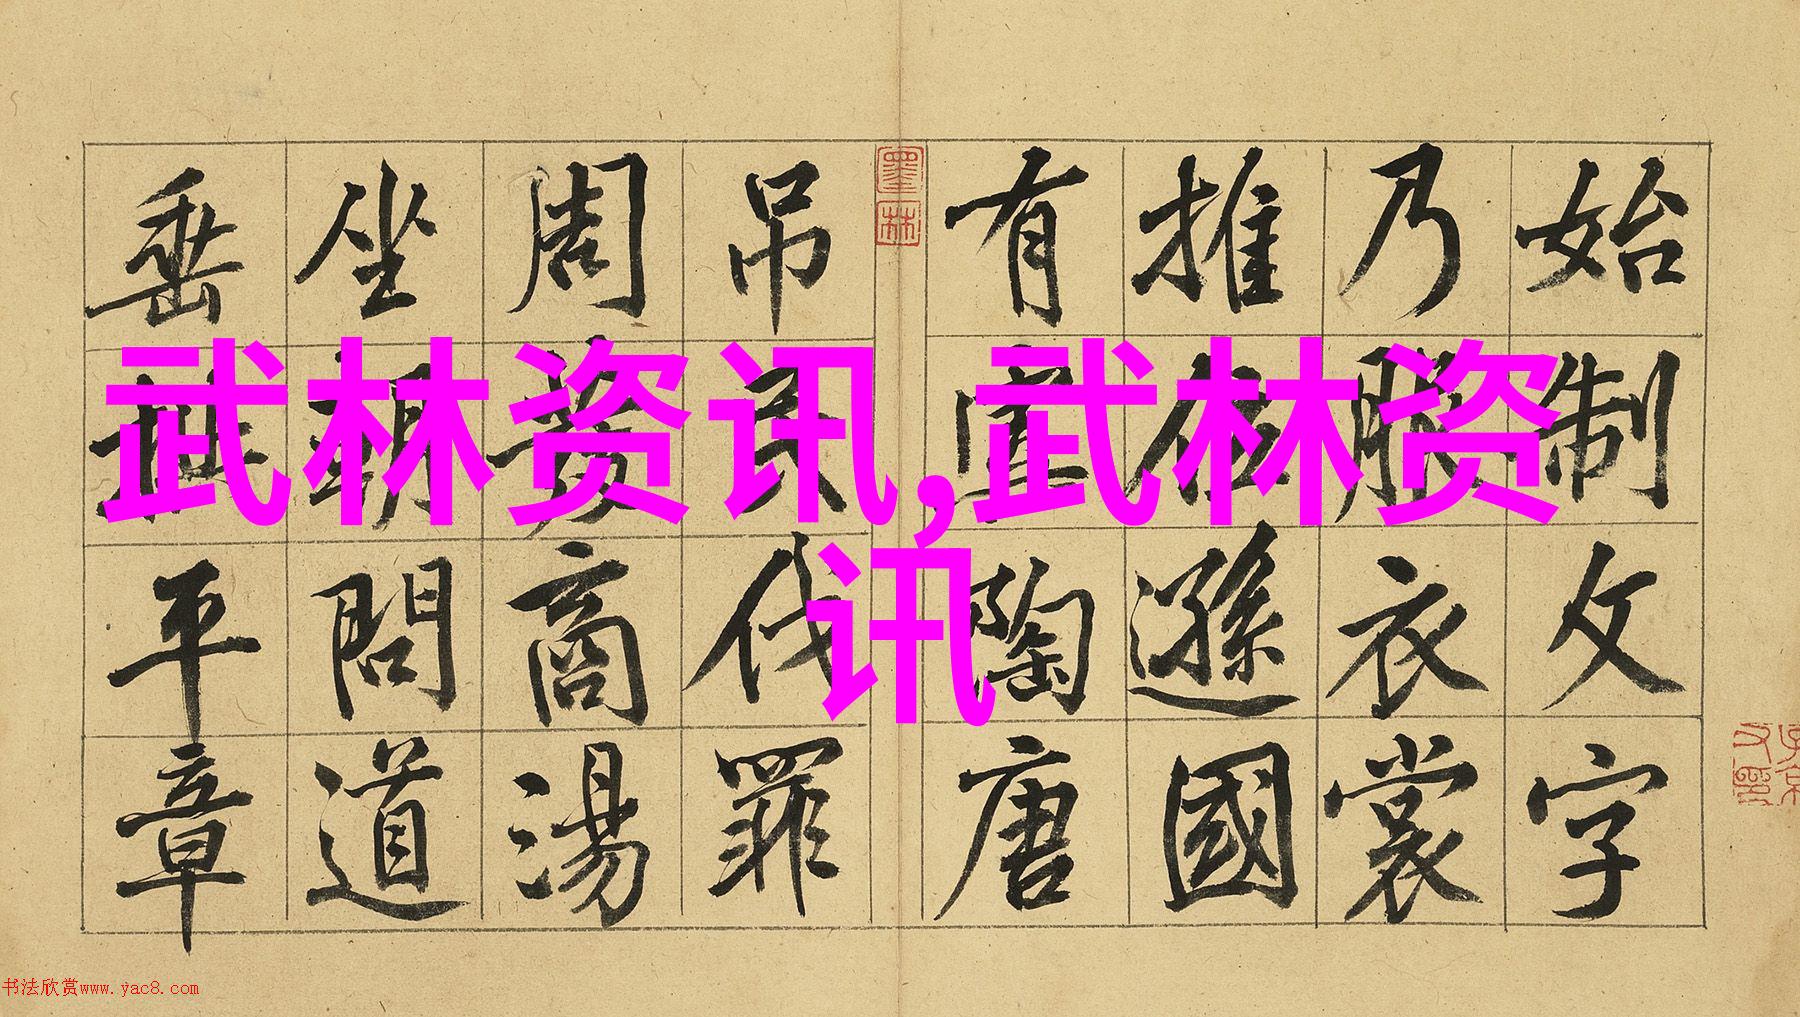 始制文字
乃服衣裳
推位遜國
有虞陶唐
墨林
吊民伐罪
周發商湯
坐朝問道
垂拱平章
武林资讯,武林资
讯
书法欣赏www.yac8.com